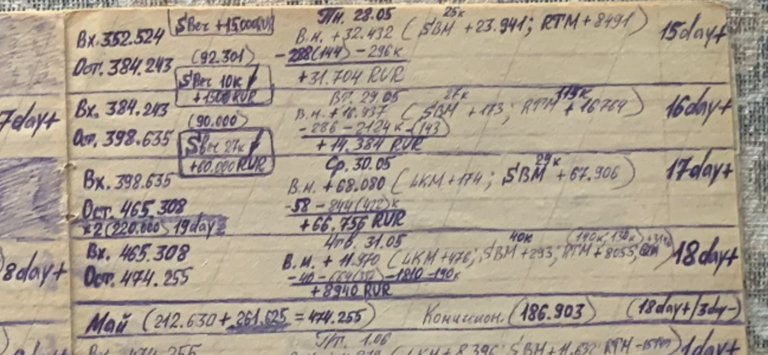 Пн. 28.05
Вх. 352.524 SBer +15000RUR В.м. +32.432 (SBM + 23.941; RTM + 8491) 15day+
25к
Ост. 384.243 (92.301) -288(144) - 296к
SBer 10к +31.704 RUR
+1500 RUR
Вт. 29.05
7day+ Вх. 384.243 (90.000) (SBM + 173; RTM + 16764) 16day+
27к 115к
Ост. 398.635 SBer 27к -286 - 2124к - (143)
+60.000 RUR +14.384 RUR
Ср. 30.05
Вх. 398.635 В.м. +68.080 (LKM + 174; SBM + 67.906) 17day+
29к
Ост. 465.308 -58 - 844(422)к
*2 (220.000) 19day +66.756 RUR
Чтв. 31.05
Вх. 465.308 В.м. + 11.970 (LKM + 476; SBM + 293; RTM + 8055; 18day+
40к
8day+ Ост. 474.255 -1810 - 190к
+8940 RUR
Май (212.630 + 261.625 = 474.255) (186.903) (18day+/3day-)
Пт. 1.06
Вх. 474.255 (LKM + 8.396; SBM + 1day+